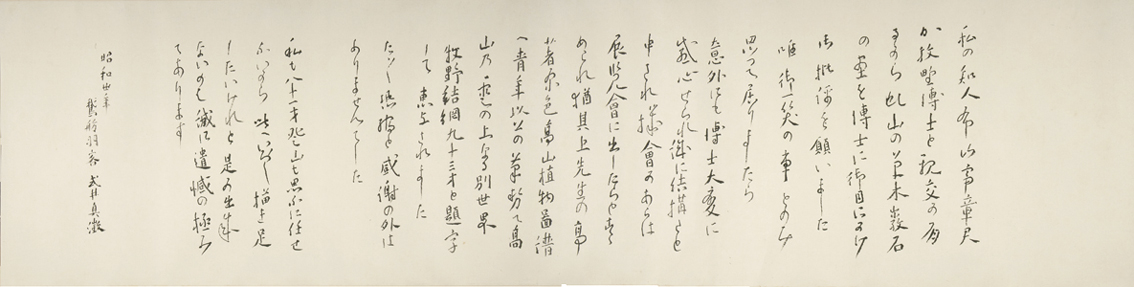 私の知人
が牧野博士と親交の有
るのら此山の草木巖石
の画を博士に御目にかけ
御批評を願いました
唯御一笑の事とのみ
思って居りましたら
意外にも博士大変に
感心せられ誠に結構たと
申され機会かあらは
展覧会に出したらと
められ猶其上先生の高
著原色高山植物図譜
へ青年以上の筆勢て高
山乃雲の上なる別世界
牧野結網九十三才と題字
して恵与されました
たゝ恐懼と感謝の外は
ありませんてした
私も八十一才登山も思ふに任せ
ないから此 し描き足
したいけれと是の出来
ないのも誠に遺憾の極み
てあります
昭和 年
武井真澂